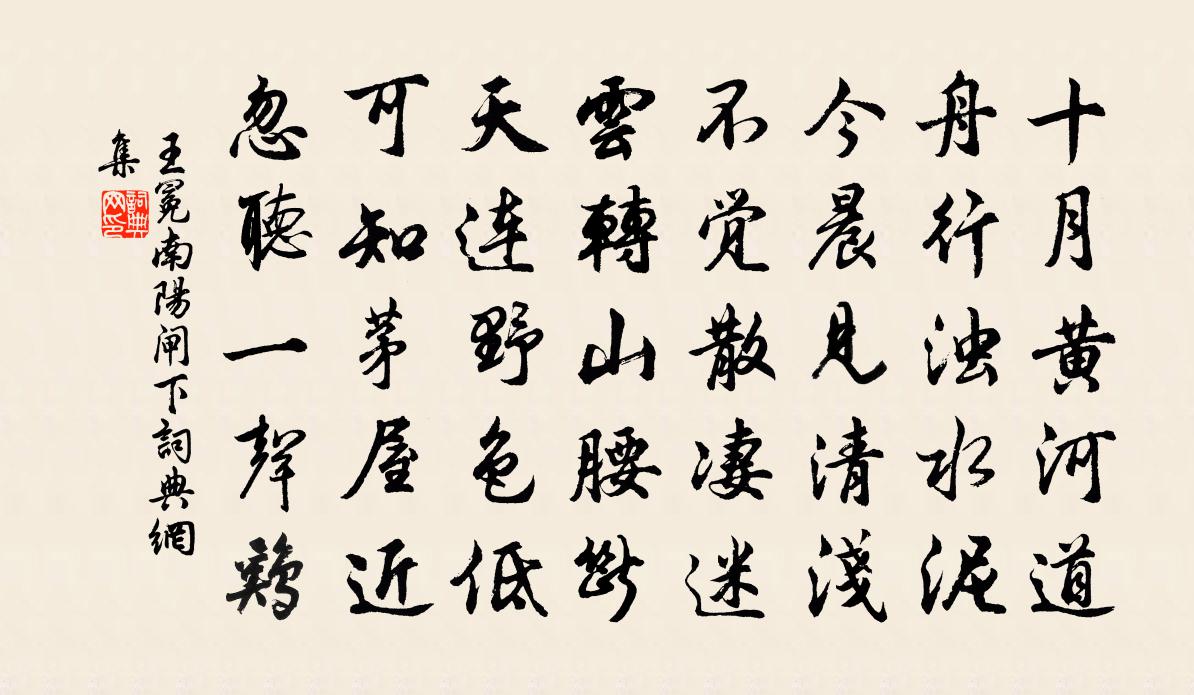 十月黄河道
舟行浊水泥
今晨見清淺
不觉散凄迷
雲轉山腰断
天連野色低
可知茅屋近
忽聽一聲鷄
王冕南陽闸下詞典網
集
詞典
网印